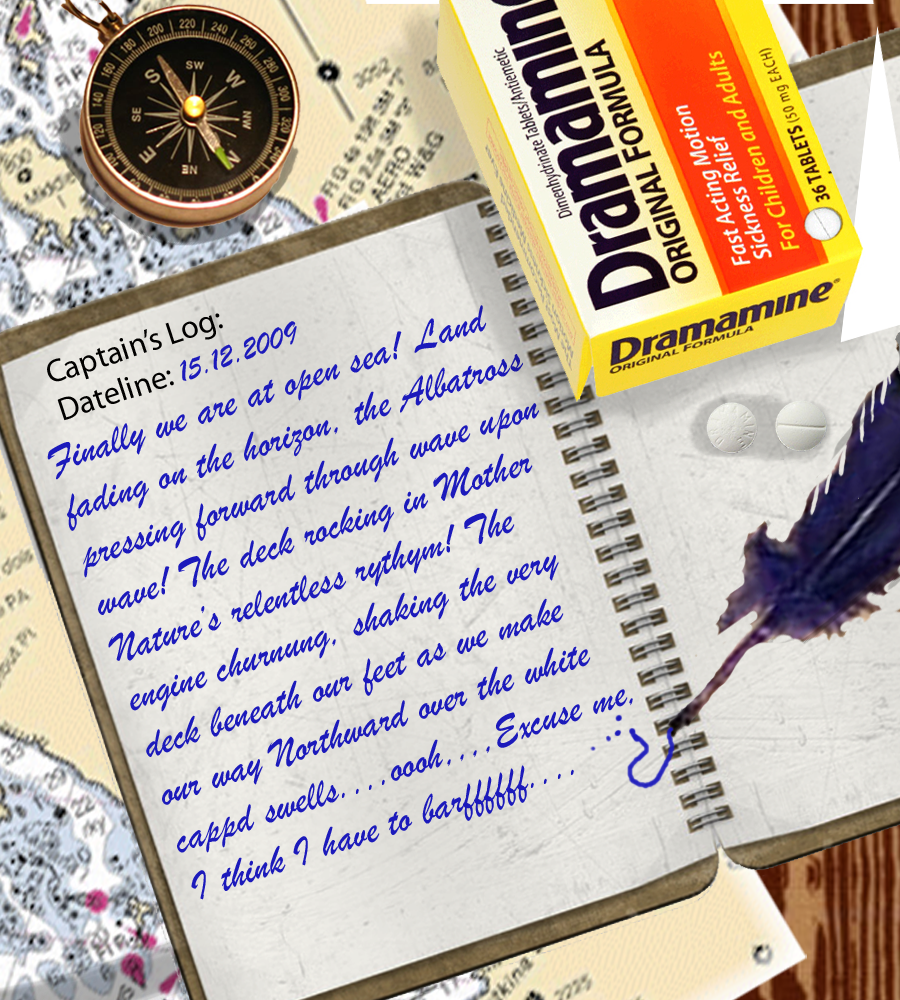 160
180
200
220
240
260
280
300
320
140
120
S
SW
W
NW
N
NE
E
SE
Dramamine
Dimenhydrinate Tablets/Antiemetic
ORIGINAL FORMULA
Fast Acting Motion
Sickness Relief
For Children and Adults
36 TABLETS (50 mg EACH)
Dramamine®
ORIGINAL FORMULA
Captain's Log:
Dateline: 15.12.2009
Finally we are at open sea! Land
fading on the horizon, the Albatross
pressing forward through wave upon
wave! The deck rocking in Mother
Nature's relentless rythym! The
engine churnung, shaking the very
deck beneath our feet as we make
our way Northward over the white
cappd swells....oooh....Excuse me,
I think I have to barffffff....